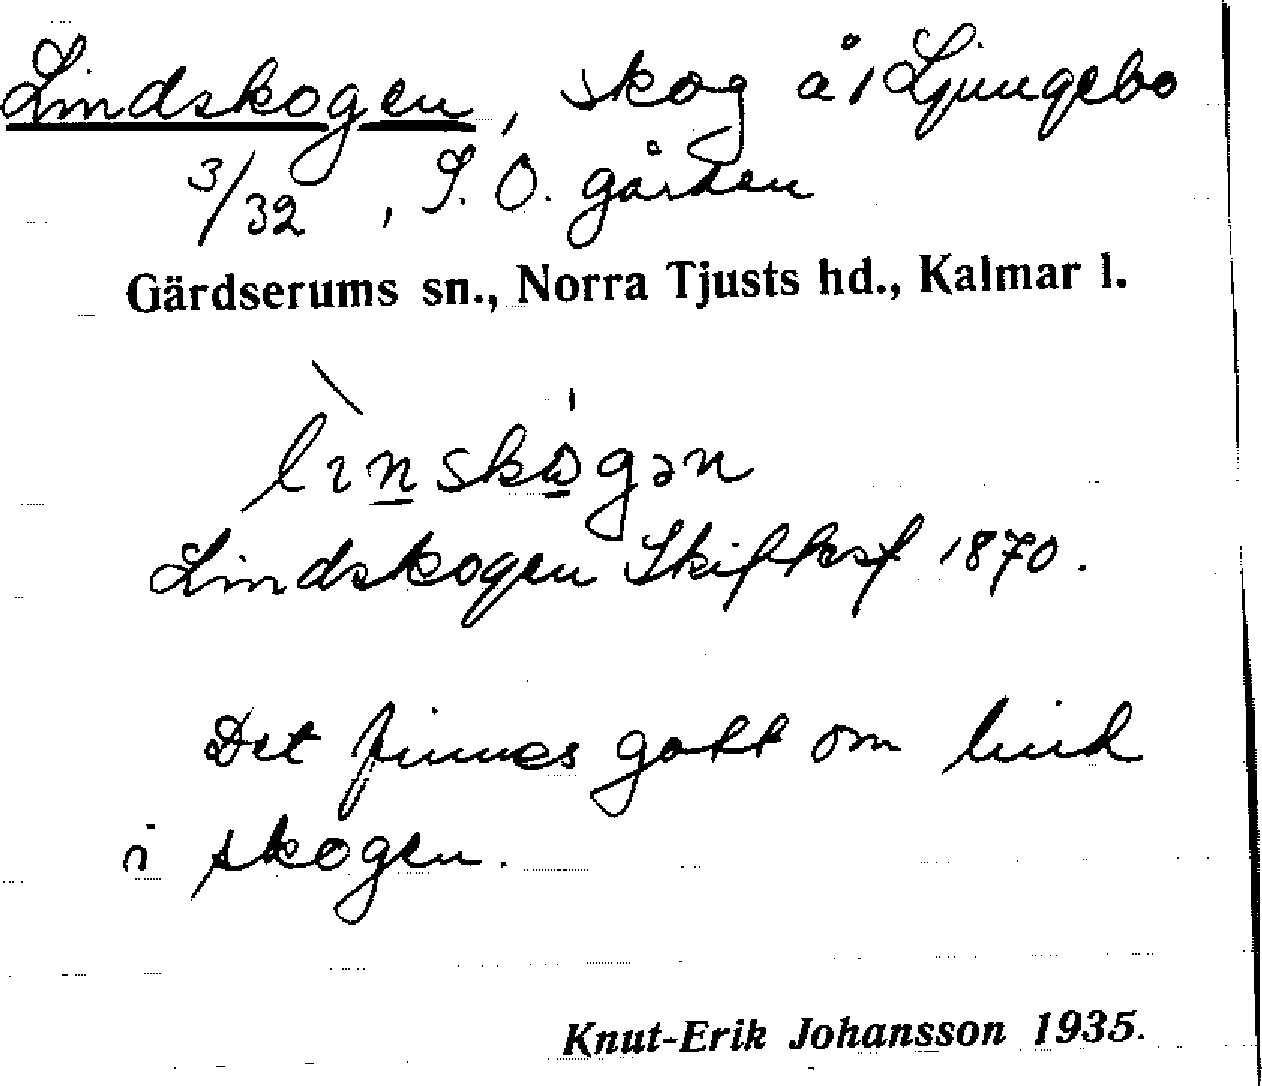 Lindskogen, skog å, Ljungebo
3/32, S.O. gården
Gärdserums sn., Norra Tjusts hd., Kalmar l.
lɩnskogən
Lindskogen Skifteskf 1870.
Det finnes gott om lind
i skogen.
Knut-Erik Johansson 1935.